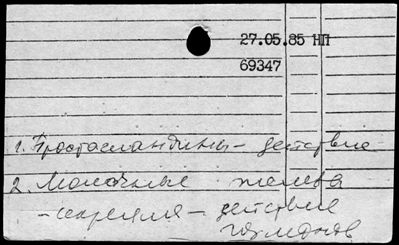 27.05.85 НП
69347
1. Простагландины – действие
2. Молочные железа
– секреция – действие
гормонов